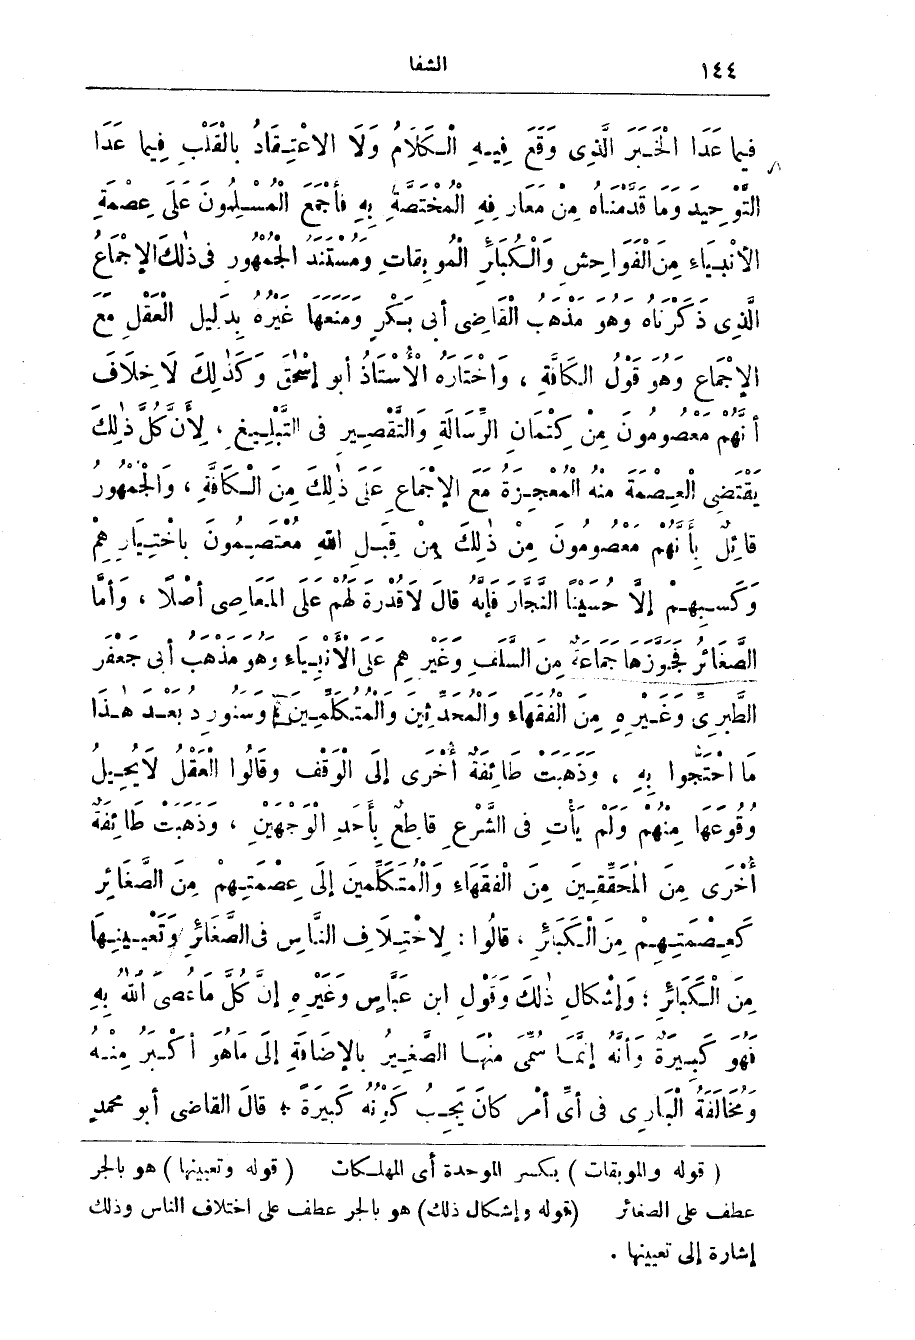 الشفا
١٤٤
فِيمَا عَدَا الْخَبَرَ الَّذِى وَقَعَ فِيهِ الْكَلَامُ وَلَا الاعْتِقَادُ بِالْقَلْبِ فِيمَا عَدَا
التَّوْحِيدَ وَمَا قَدَّمْنَاهُ مِنْ مَعَارِفِهِ الْمُخْتَصَّةِ بِهِ فأجْمَعَ الْمُسْلِمُونَ عَلَى عِصْمَةِ
الأنْبِيَاءِ مِنَ الْفَوَاحِشِ وَالْكَبَائِرِ الْمُوبِقَاتِ وَمُسْتَنَدُ الْجُمْهُورِ فى ذٰلِكَ الإجْمَاعُ
الَّذِى ذَكَرْنَاهُ وَهُوَ مَذْهَبُ الْقَاضِى أبى بَكْرٍ وَمَنَعَهَا غَيْرُهُ بِدَلِيلِ الْعَقْلِ مَعَ
الإجْمَاعِ وَهُوَ قَوْلُ الكَافَّةِ ، وَاخْتَارَهُ الْأُسْتَاذُ أبو إسْحٰقَ وَكَذٰلِكَ لَا خِلَافَ
أنَّهُمْ مَعْصُومُونَ مِنْ كِتْمَانِ الرِّسَالَةِ وَالتَّقْصِيرِ فى التَّبْلِيغِ ، لِأَنَّ كُلَّ ذٰلِكَ
يَقْتَضِى الْعِصْمَةَ مِنْهُ الْمُعْجِزَةُ مَعَ الإجْمَاعِ عَلَى ذٰلِكَ مِنَ الْكَافَّةِ ، وَالْجُمْهُورُ
قَائِلٌ بِأَنَّهُمْ مَعْصُومُونَ مِنْ ذٰلِكَ مِنْ قِبَلِ اللهِ مُعْتَصِمُونَ بِاخْتِيَارِهِمْ
وَكَسْبِهِمْ إلَّا حُسَيْنًا النَّجَّارَ فَإنَّهُ قالَ لَا قُدْرَةَ لَهُمْ عَلَى المَعَاصِى أصْلًا ، وَأمَّا
الصَّغَائِرُ فَجَوَّزَهَا جَمَاعَةٌ مِنَ السَّلَفِ وَغَيْرِهِمْ عَلَى الْأَنْبِيَاءِ وَهُوَ مَذْهَبُ أبى جَعْفَرٍ
الطَّبَرِىِّ وَغَيْرِهِ مِنَ الْفُقَهَاءِ وَالْمُحَدِّثِينَ وَالْمُتَكَلِّمِينَ وَسَنُورِدُ بَعْدَ هٰذَا
مَا احْتَجُّوا بِهِ ، وَذَهَبَتْ طَائِفَةٌ أُخْرَى إلَى الْوَقْفِ وقَالُوا الْعَقْلُ لَايُحِيلُ
وُقُوعَهَا مِنْهُمْ وَلَمْ يَأْتِ فى الشَّرْعِ قَاطِعٌ بِأَحَدِ الْوَجْهَيْنِ ، وَذَهَبَتْ طَائِفَةٌ
أُخْرَى مِنَ المُحَقِّقِينَ مِنَ الْفُقَهَاءِ وَالْمُتَكَلِّمِينَ إلَى عِصْمَتِهِمْ مِنَ الصَّغَائِرِ
كَعِصْمَتِهِمْ مِنَ الْكَبَائِرِ ، قَالُوا : لِاخْتِلَافِ النَّاسِ فى الصَّغَائِرِ وَتَعْيِينِهَا
مِنَ الْكَبَائِرِ ؛ وَإشْكَالِ ذٰلِكَ وَقَوْلِ ابن عَبَّاسٍ وَغَيْرِهِ إنَّ كُلَّ مَا عُصِىَ اللهُ بِهِ
فَهُوَ كَبِيرَةٌ وَأنَّهُ إنَّمَا سُمِّىَ مِنْهَا الصَّغِيرُ بِالإضَافَةِ إلَى مَاهُوَ أكْبَرُ مِنْهُ
وَمُخَالَفَةُ الْبَارِى فى أىِّ أمْرٍ كانَ يَجِبُ كَوْنُهُ كَبِيرَةً * قالَ القاضى أبو محمدٍ
( قوله والموبقات ) بكسر الموحدة أى المهلكات ( قوله وتعيينها ) هو بالجر
عطف على الصغائر (قوله وإشكال ذلك) هو بالجر عطف على اختلاف الناس وذلك
إشارة إلى تعيينها .